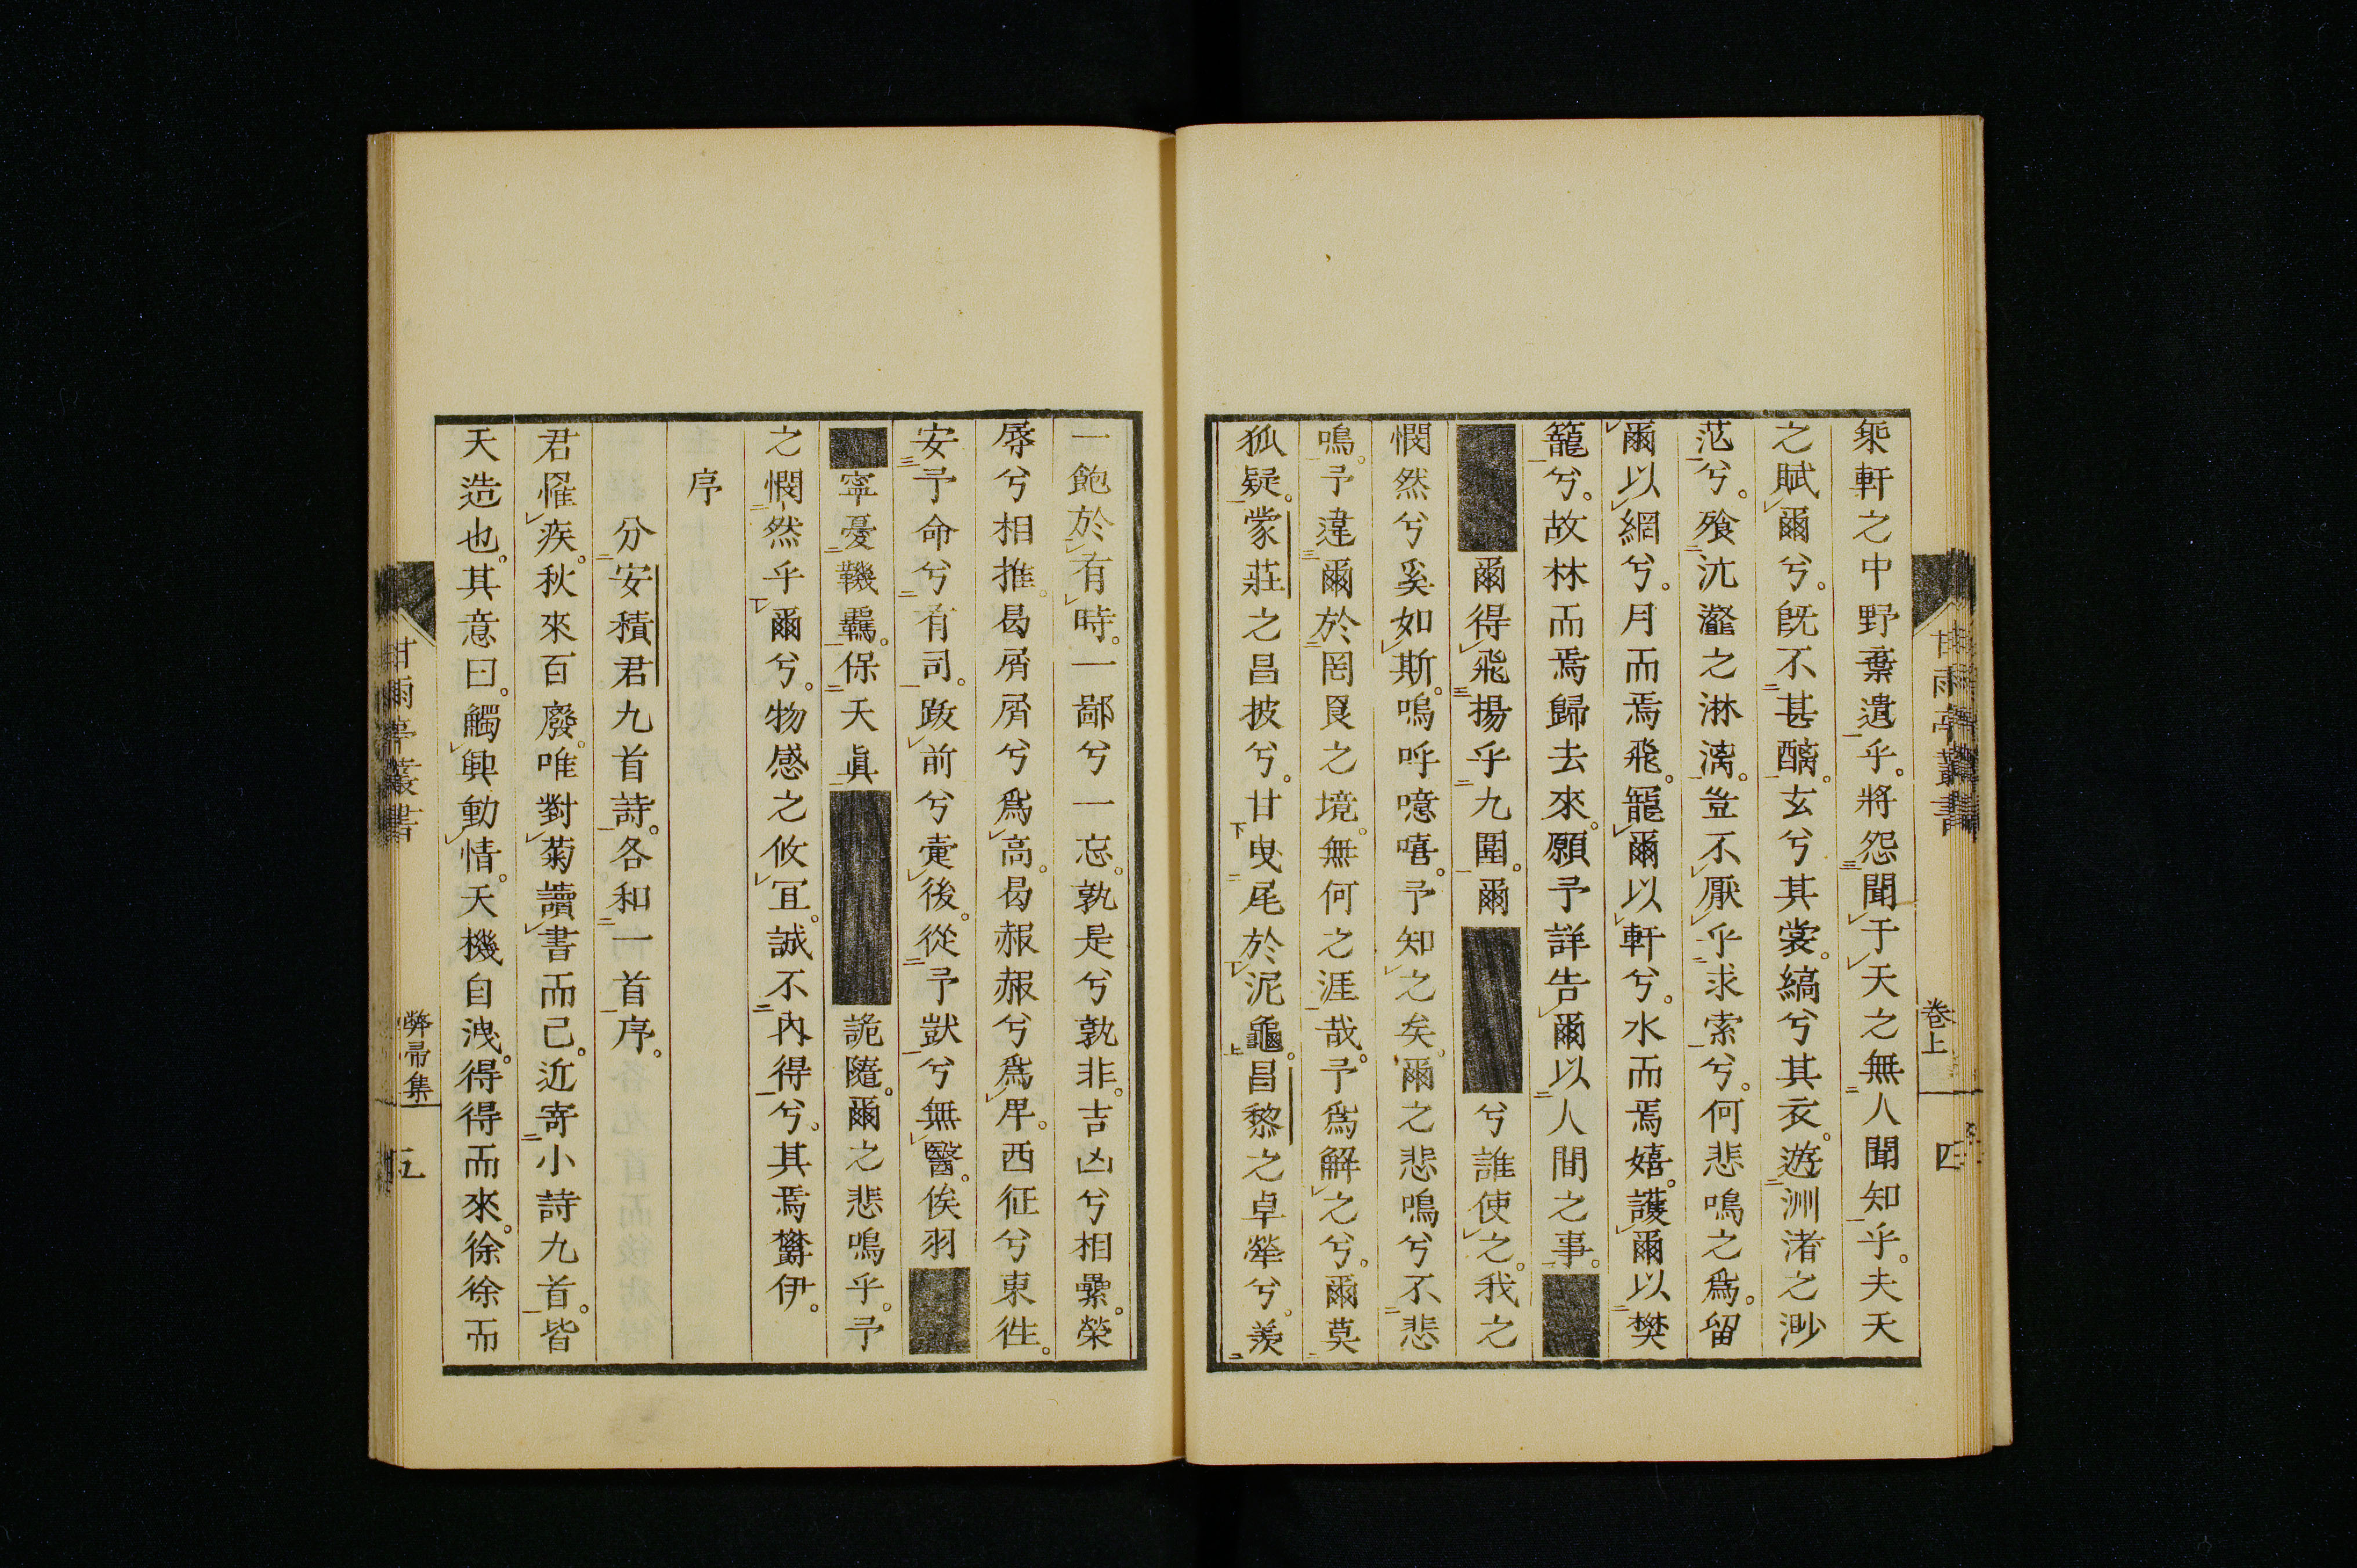 乘軒之中野棄遺乎。將怨聞于天之無人聞知乎。夫天
之賦爾兮。既不甚醨。玄兮其裳。縞兮其衣。遊洲渚之渺
茫兮。飱沆瀣之淋漓。豈不厭乎求索兮。何悲鳴之爲。留
爾以網兮。月而焉飛。籠爾以軒兮。水而焉嬉。護爾以樊
籠兮。故林而焉歸去來。願予詳告爾以人間之事。
爾得飛揚乎九圍。爾 兮誰使之。我之
憫然兮奚如斯。嗚呼噫嘻。予知之矣。爾之悲鳴兮不悲
鳴。予違爾於罔艮之境。無何之涯哉。予爲解之兮。爾莫
狐疑。蒙莊之昌披兮。甘曳尾於泥龜。昌黎之卓犖兮。羨
卷上
四
一飽於有時。一鄙兮一忘。孰是兮孰非。吉凶兮相纍。榮
辱兮相推。曷屑屑兮爲高。曷赧赧兮爲卑。西征兮東徃。
安予命兮有司。跋前兮疐後。從予獃兮無醫。俟羽
寧憂鞿羈。保天眞 詭隨。爾之悲鳴乎。予
之憫然乎爾兮。物感之攸宜。誠不內得兮。其焉鬱伊。
序
分安積君九首詩。各和一首序。
君罹疾。秋來百廢。唯對菊讀書而已。近寄小詩九首。皆
天造也。其意曰。觸興動情。天機自洩。得得而來。徐徐而
甘雨亭叢書
弊帚集
五